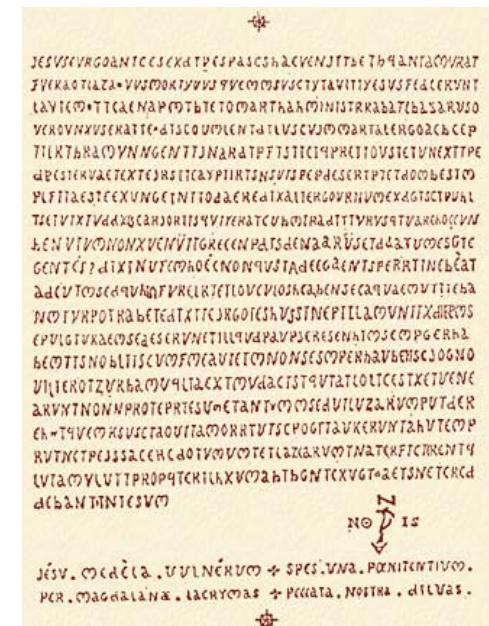 JESVSEVRGOANTCESSEXdTPESPASCShAEVENJTTbEThqANTAMVRAT
FVERAOTIAZA•VVSMORTYVVSqVEMMSVSCTYTAVITIYESVSFEdCERVNT
LAVIEM•TTCAENAPMTbTETOMARThAhMINISTRRAbATCbAZARUSO
VEROVNXVSERATTE•dTSCOUMLENTdTLUSCVJMMARTALERGOACbCEP
TTLKThRAMYNNGENTTJNARdTPFTSTTCIqPRETTOVSTETVNEXTTPE
dPESTERVAETEXTEJRSTTCAYPIIRTSNSVTSPEPdESERTPTETdOMbESTM
PLFTTAESTEEXUNGEINTTOdAEREdIXALTERGOVRNUMEXdGTSCTPUhL
TSETVIXTVddXGCARJORTTSqVIYERATCUhMTRAdTTTVRUSqTVAREhOCCVNS
bENVTVMONONXVENVTTGRECENPdTSdENAARVSETddATUMESGTE
GENTÉS?dIXTNUFEMhOÉCNONqVSTAdEEGAENTSPERRTINEbÉAT
AdCUTMSEdqVhNFVRELRTETLOVCVLOShCAbENSECAqVAEMVTTIEbA
NMTVRPOTRAbETEdTXTTEJRGOTEShVSSTNEPTLLAMVNTTXdIEPMS
EPVLGTVRAEMSEdESERVNETILLqVdPAVPSERESENhTMSEMPGERhA
bEMTTSNObLITSCVMFMEAVIETMNONSESMPERhAVbENSCJOGNO
VILIEROTZVRbAMVqLTAEXTMVdACTSTqVTATLOLTCESTXETVENE
ARVNTNONNPROTEPRTESU^ETANTVMMSEdUTLUZARVMPUTdER
Eh•TqVEMKSUSCTAOUITAMORRTUTSCPOGTTAVKERVNTAhVTEMP
RVTNCTPEJSSACERCdOTVMVMTETLAZCARVMTNATERFTCTRENTq
LVTAMYLVTTPROPqTERILhXVMAhTbGNTEXVGT•AETSNETCRCd
dEbANTTNTESVM
N
NO IS
JÉSV . MEdÈLA . VULNÉRUM + SPES . UNA . POENITENTIUM .
PER . MAGdALANÆ . LACRYMAS + PECCATA . NOSTRA . dILUAS .